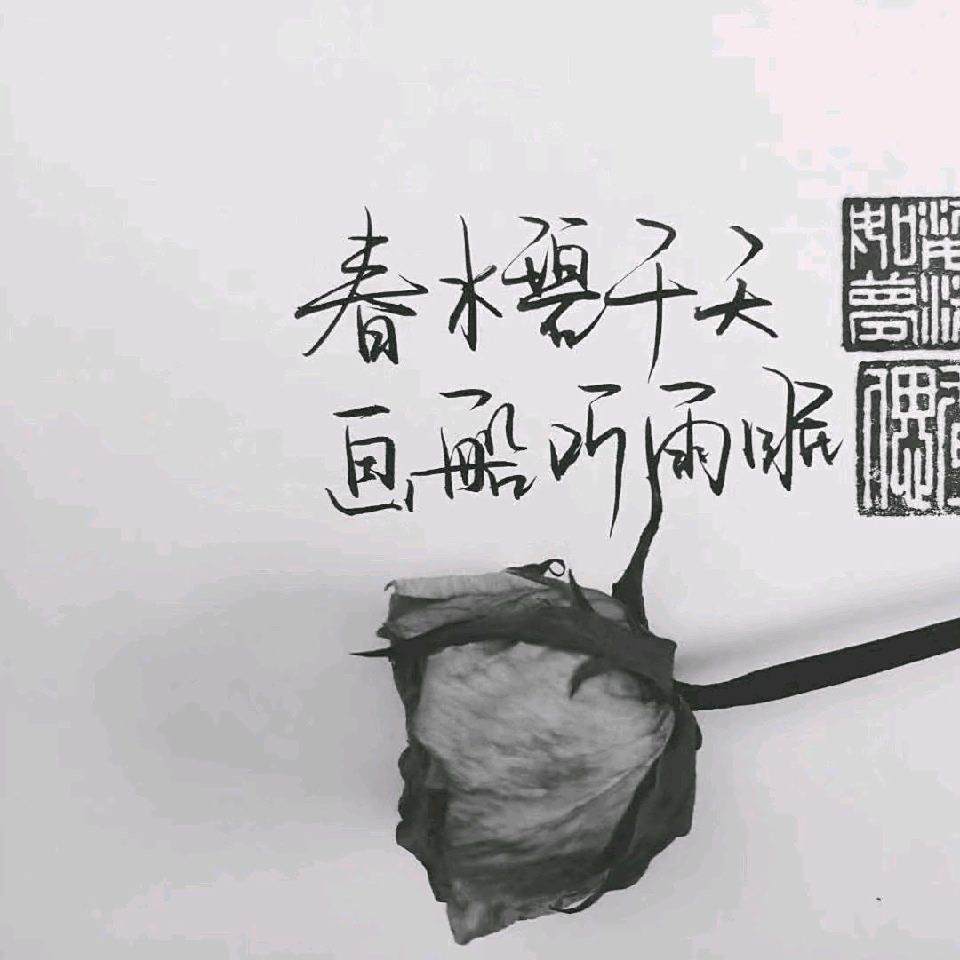 春水碧于天
画船听雨眠
如夢